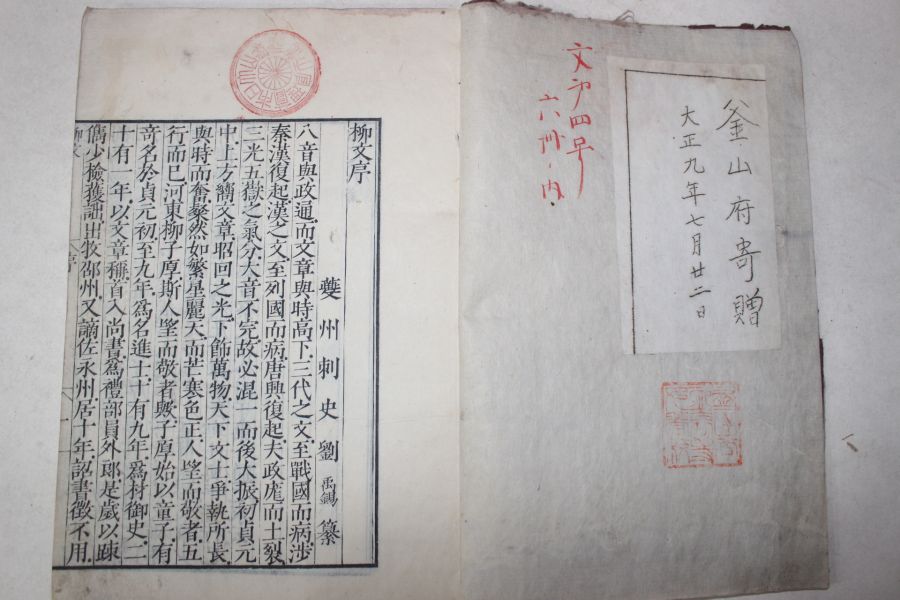 釜山府寄贈
大正九年七月廿二日
文第四号
六冊ノ内
柳文序
夔州刺史劉禹錫纂
八音與政通、而文章與時高下、三代之文、至戰國而病、涉
秦漢復起、漢之文、至列國而病、唐興復起、夫政庬而土裂、
三光五嶽之氣分、大音不完、故必混一而後大振、初貞元
中、上方嚮文章、昭回之光、下飾萬物、天下文士、爭執所長、
與時而奮、粲然如繁星麗天、而芒寒色正、人望而敬者、五
行而已、河東柳子厚、斯人望而敬者歟、子厚始以童子、有
奇名於貞元初、至九年、爲名進士、十有九年、爲材御史、二
十有一年、以文章稱首、入尚書、爲禮部員外郎、是歲以疎
儁少檢獲訕、出牧邵州、又謫佐永州、居十年、詔書徵不用、